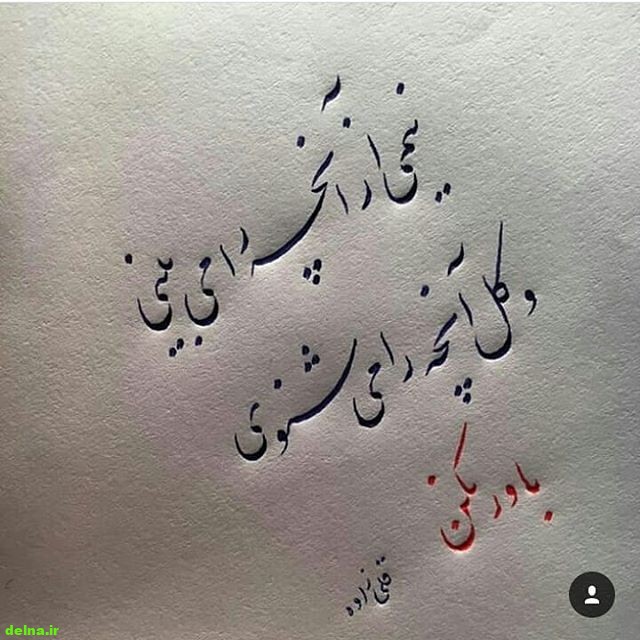 نیمی از آنچه را می بینی
و کل آنچه را می شنوی
باور مکن
قلی زاده
delna.ir